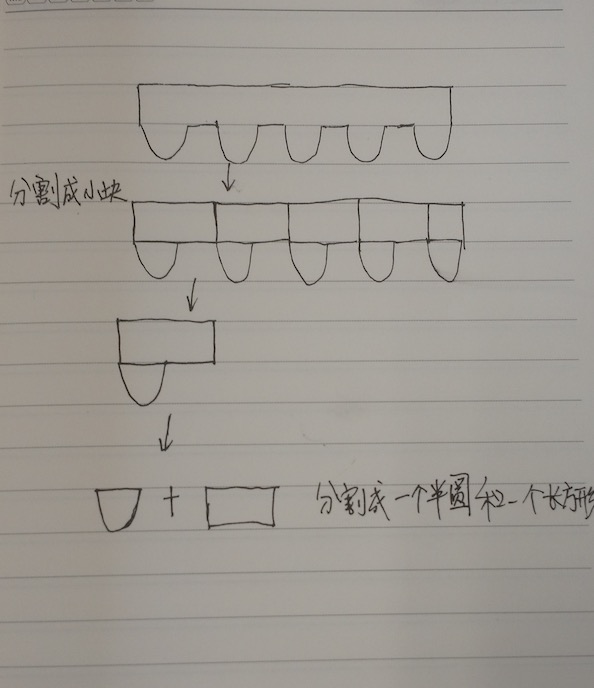 分割成小块
分割成一个半圆和一个长方形